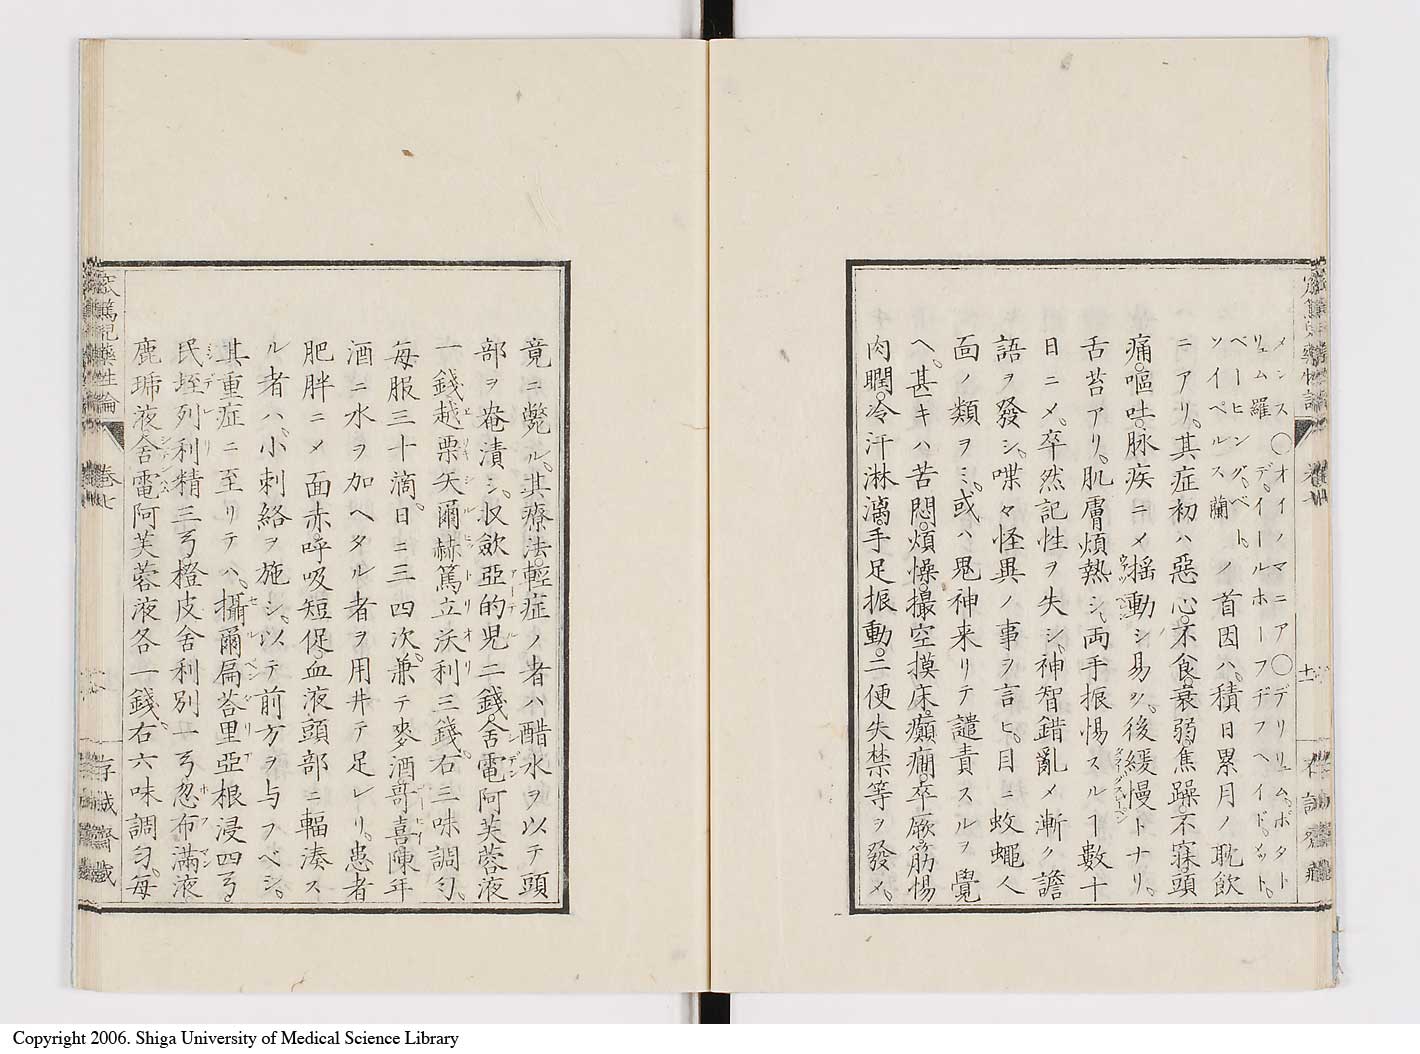 メンス〇オイノマニア〇デリリュム。ポタト
リュム羅デイールホーフヂフヘイド。メット。
ベーヒング。ベト。
ソイペルス蘭ノ首因ハ。積日累月ノ耽飲
ニアリ。其症初ハ惡心。不食。衰弱。焦躁。不寐。頭
痛。嘔吐。脉疾ニメ搖動シ易ク。後緩慢トナリ。
舌苔アリ。肌膚煩熱シ。両手振惕スルヿ數十
日ニメ。卒然記性ヲ失シ。神智錯亂メ漸ク譫
語ヲ發シ。喋々怪異ノ事ヲ言ヒ。目ニ蚊蠅人
面ノ類ヲミ。或ハ鬼神来リテ譴責スルヲ覺
ヘ。甚キハ苦悶。煩懆。撮空摸床。癲癇。卒厥。筋惕
肉瞤。冷汗淋漓。手足振動。二便失禁等ヲ發メ。
竟ニ斃ル。其療法。輕症ノ者ハ醋水ヲ以テ頭
部ヲ罨漬シ。収歛亞的児二錢。舎電阿芙蓉液
一錢越栗失爾赫篤立沃利三錢。右三味調匀。
毎服三十滴。日ニ三四次。兼テ麥酒哥喜陳年
酒ニ水ヲ加ヘタル者ヲ用井テ足レリ。患者
肥胖ニメ面赤。呼吸短促。血液頭部ニ輻湊ス
ル者ハ。小刺絡ヲ施シ。以テ前方ヲ与フベシ。
其重症ニ至リテハ。攝爾扁荅里亞根浸四弓。
民垤列利精三弓橙皮舎利別一弓忽布滿液
鹿琋液舎電阿芙蓉液各一錢。右六味調匀。毎
窊篤児藥性論
巻七
存誠齋藏